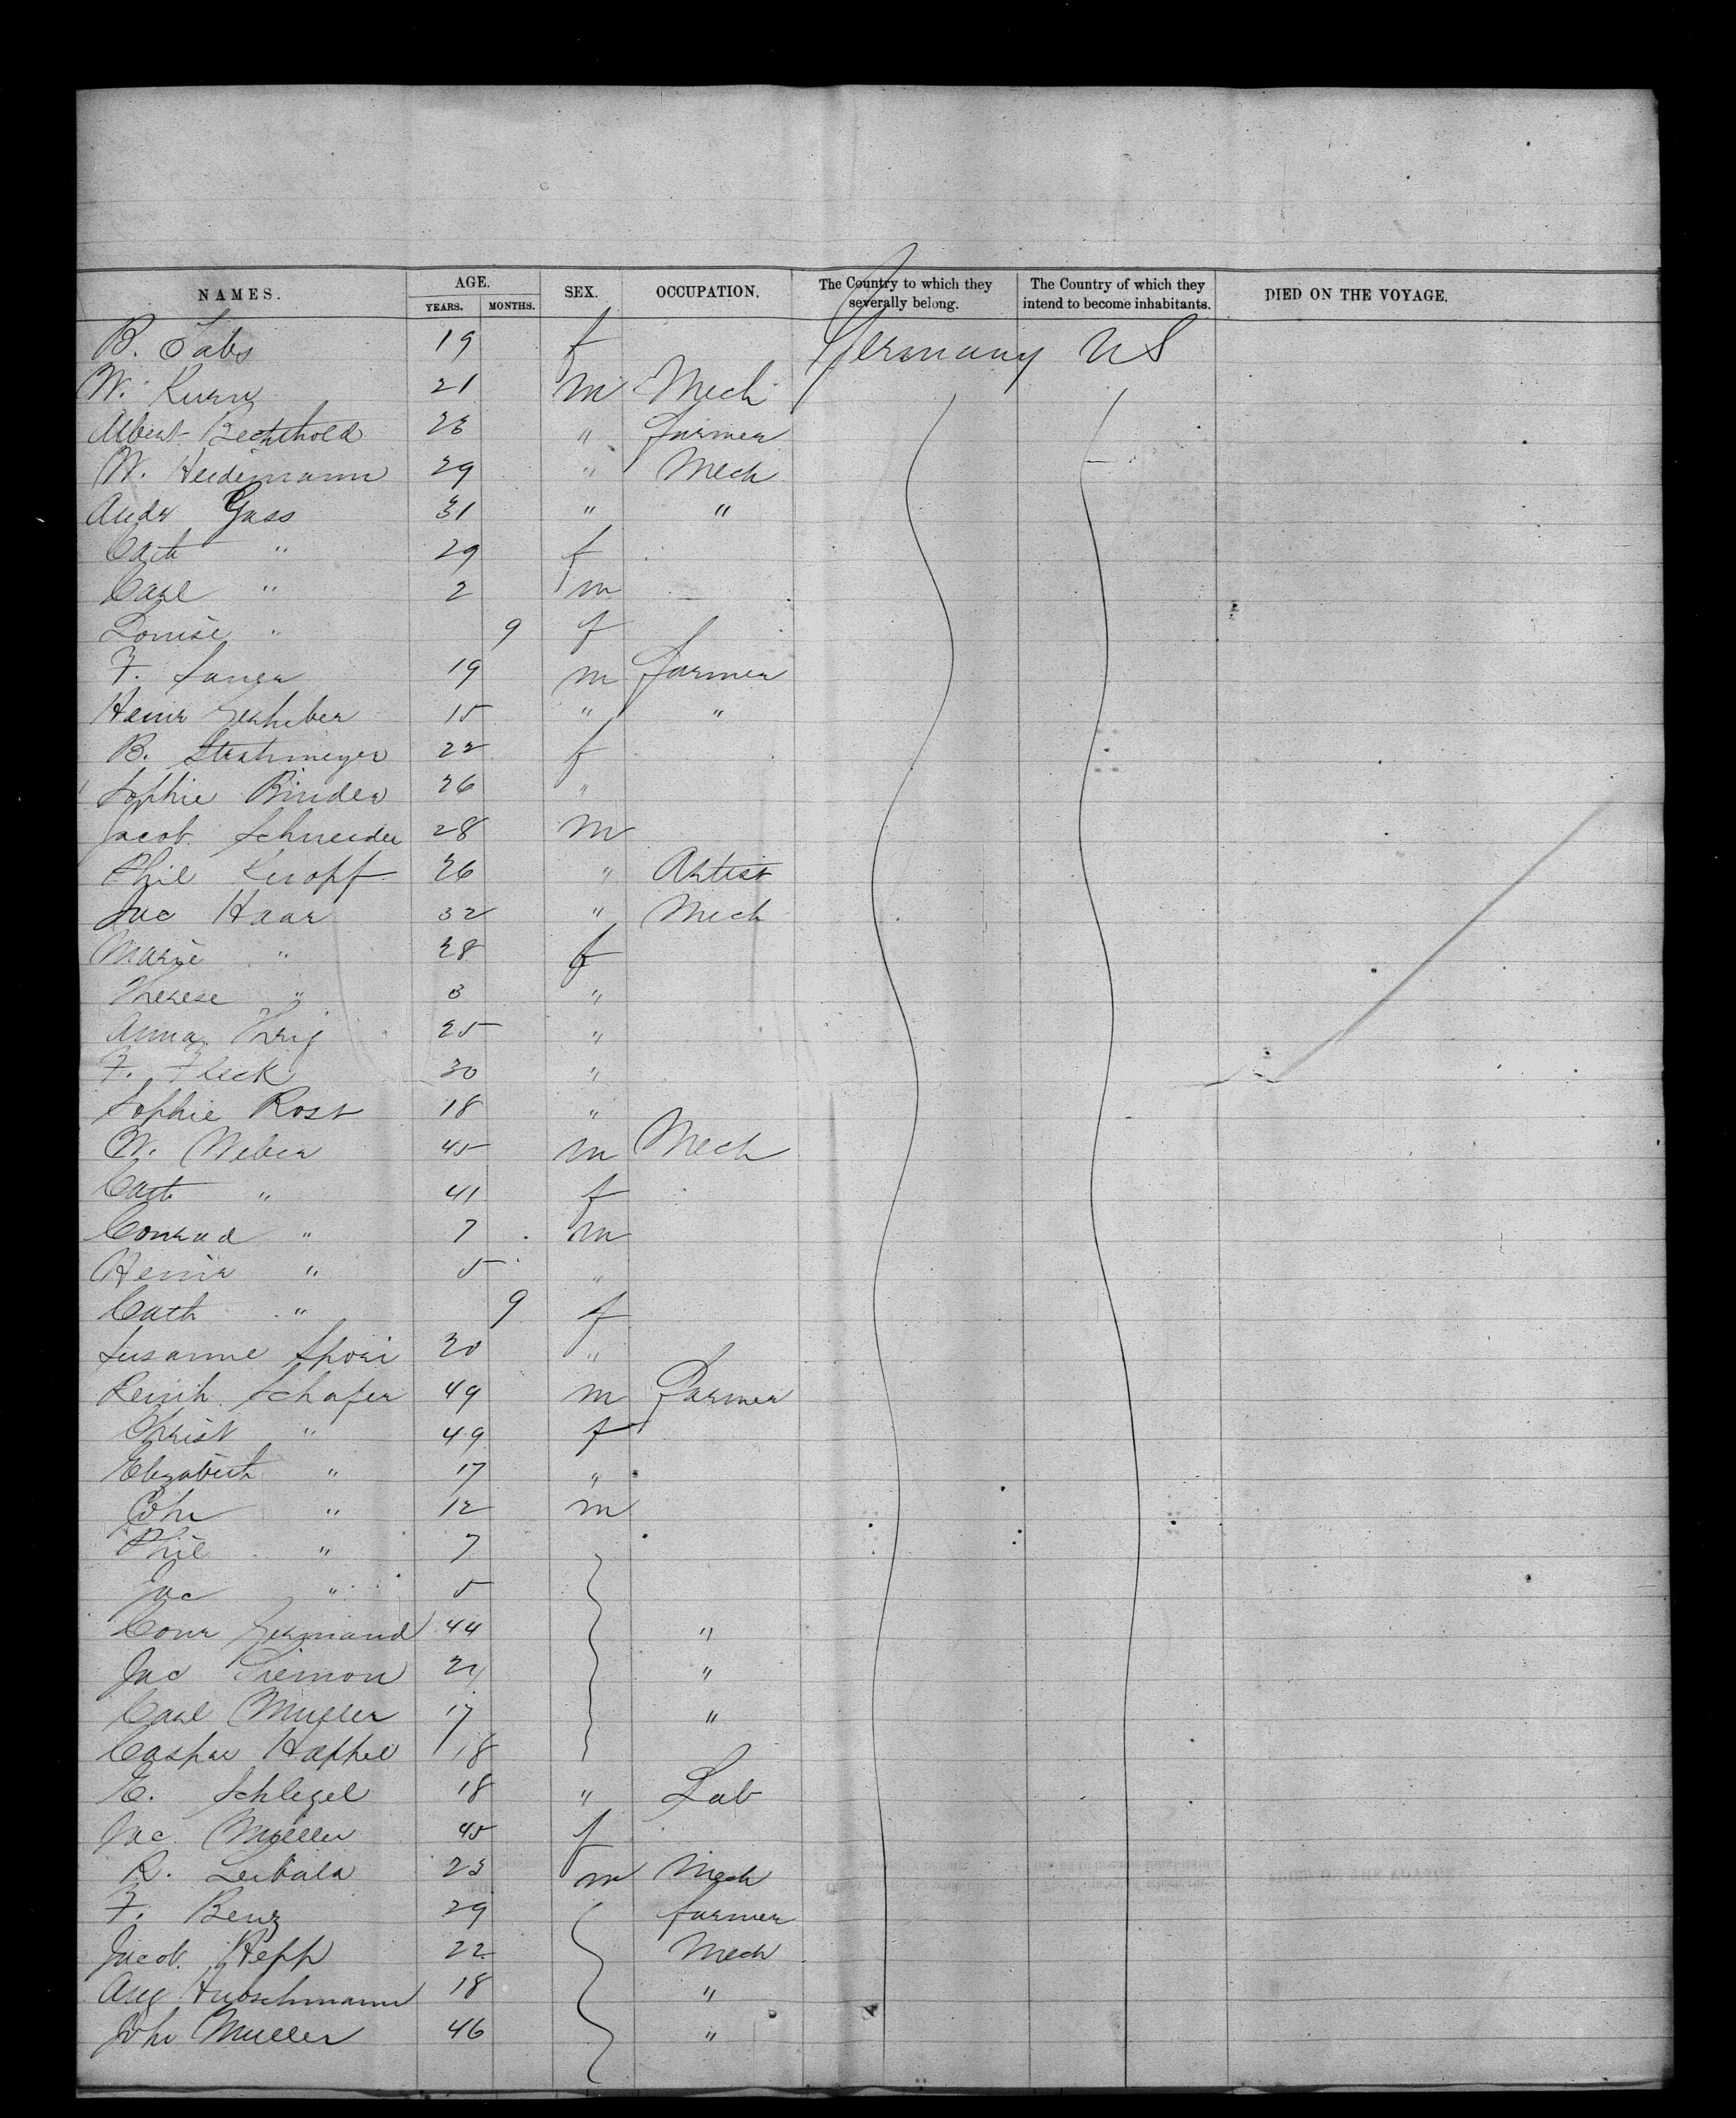 NAMES. AGE. YEARS. MONTHS. SEX. OCCUPATION. The Country to which they severally belong. The Country of which they intend to become inhabitants. DIED ON THE VOYAGE.
B. 19 f Germany US
W. 21 m Mech
Albert Bechthold 23 " farmer
W. Heidemann 29 " Mech
Andr Gass 31 " "
Cath " 29 f
Carl " 2 m
Louise " 9 f
F. 19 m farmer
Heinr 15 " "
B. Stratmeyer 22 f
Sophie Binder 26 "
Jacob Schneider 28 m
Phil Knopf 26 " Artist
Jac Haar 32 " Mech
Marie " 28 f
Therese " 3 "
Anna 25 "
F. Fleck 30 "
Sophie Rost 18 "
W. Weber 45 m Mech
Cath " 41 f
Conrad " 7 m
Heinr " 5 "
Cath " 9 f
Susanne 20 "
Schafer 49 m Farmer
Christ " 49 f
Elizabeth " 17 "
Joh " 12 m
Phil " 7
Jac " 5
Conr 44 "
Jac 24 "
Carl Muller 17 "
Caspar 18
E. Schlegel 18 " Lab
Jac Mueller 45 f
R. 23 m Mech
F. Benz 29 farmer
Jacob Hepp 22 Mech
Aug Hubschmann 18 "
Joh Muller 46 "